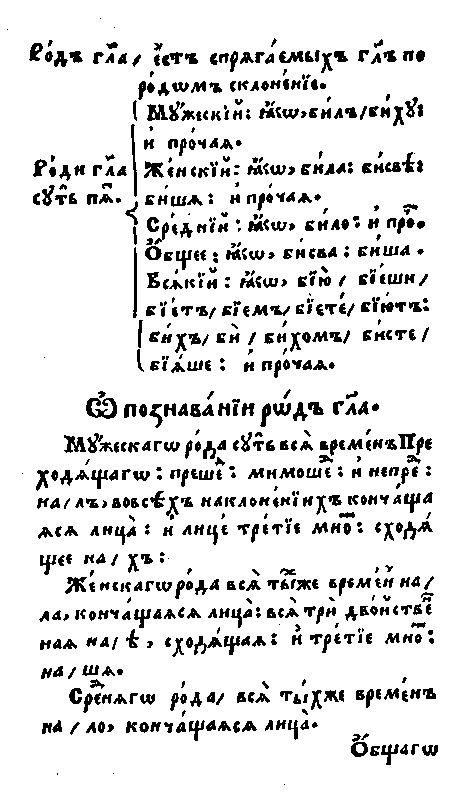 Ро́дъ гл҃а, є҆́стъ спрѧга́емыхъ гл҃ъ по
ро́дѡмъ склоне́нїе.
Мꙋ́жескїй: ꙗ҆́кѡ, би́лъ, би́хꙋ:
и҆ про́чаѧ.
Ро́ди гл҃а Же́нскїй: ꙗ҆́кѡ, би́ла: бисвѣ:
сꙋ́ть пѧ҃. би́шѧ: и҆ про́чаѧ.
Сре́днїй: ꙗ҆́кѡ, би́ло: и҆ про҃.
Ѻ҆́бщее: ꙗ҆́кѡ, бисва: би́ша.
Всѧ́кїй: ꙗ҆́кѡ, бїю̀, бїе́ши,
бїе́тъ, бїе́мъ, бїете́, бїю́тъ:
би́хъ, бѝ, би́хомъ, би́сте,
бїѧ́ше: и҆ про́чаѧ.
Ѽ познава́нїи рѡ́дъ гл҃а.
Мꙋ́жескагѡ ро́да сꙋ́ть всѧ̀ време́нъ Пре
ходѧ́щагѡ: преше҃: мимоше҃: и҆ непре҃:
на, лъ, вовсѣ́хъ наклоне́нїихъ конча́ща
ѧсѧ лица̀: и҆ лице́ тре́тїе мно҃: сходѧ́
щее на, хъ:
Же́нскагѡ ро́да всѧ̀ ты́ѧже време́нъ на,
ла, конча́щаѧсѧ лица̀: всѧ̀ трѝ дво́йстве҃
наѧ на, ѣ, сходѧ́щаѧ: и҆ тре́тїе мно҃:
на, шѧ.
Сре҃нѧгѡ ро́да, всѧ̀ ты́хже време́нъ
на, ло, конча́щаѧсѧ лица̀.
Ѻ҆́бщагѡ